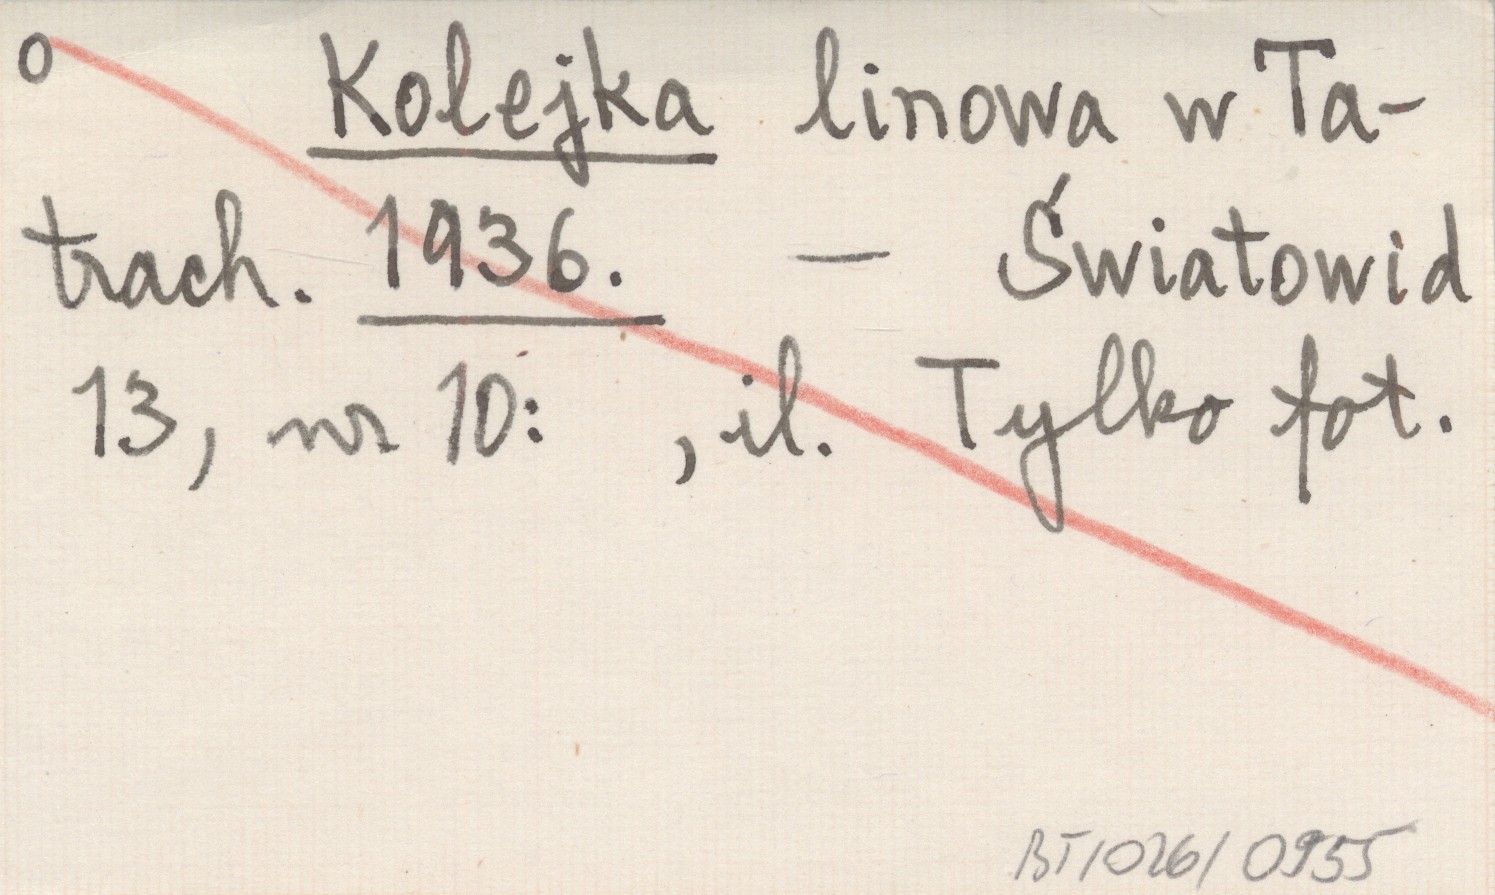 o Kolejka linowa w Ta-
trach. 1936. — Światowid
13, nr 10: , il. Tylko fot.
BT/026/0955